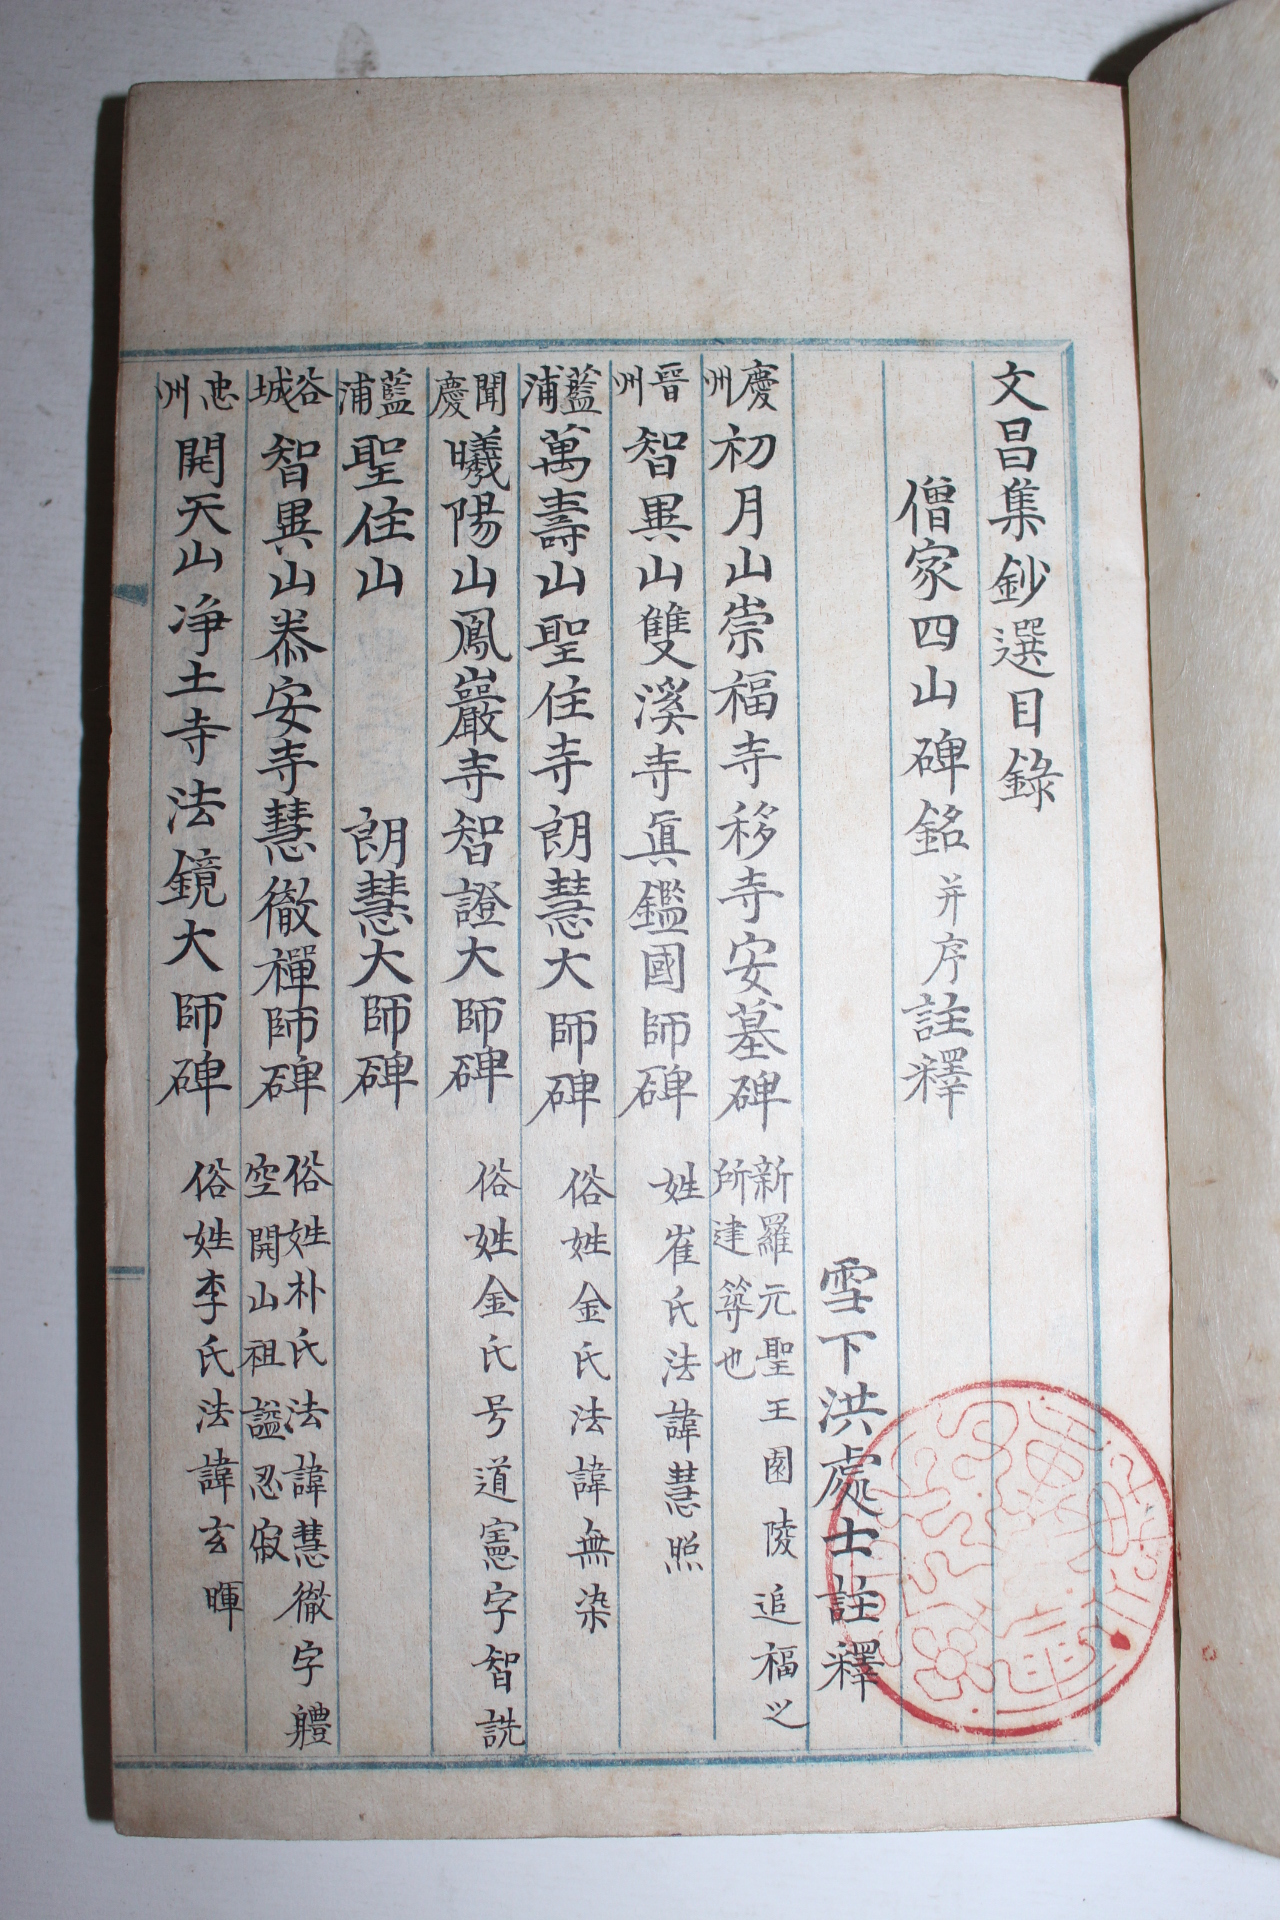 文昌集鈔選目錄
僧家四山碑銘并序註釋
雪下洪處士註釋
慶州 初月山崇福寺移寺安墓碑 新羅元聖王園陵追福之所建築也
晋州 智異山雙溪寺眞鑑國師碑 姓崔氏法諱慧照
藍浦 萬壽山聖住寺朗慧大師碑 俗姓金氏法諱無染
聞慶 曦陽山鳳巖寺智證大師碑 俗姓金氏号道憲字智詵
藍浦 聖住山 朗慧大師碑
谷城 智異山泰安寺慧徹禪師碑 俗姓朴氏法諱慧徹字體空開山祖謚忍㝛
忠州 開天山净土寺法鏡大師碑 俗姓李氏法諱玄暉